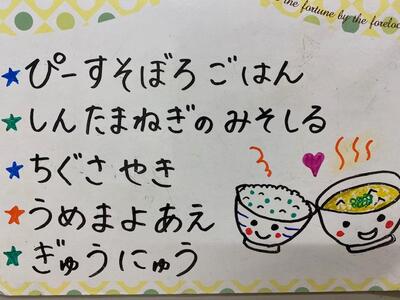 the fortune by the forelock
ぴーすそぼろごはん
しんたまねぎのみそしる
ちぐさやき
うめまよあえ
ぎゅうにゅう